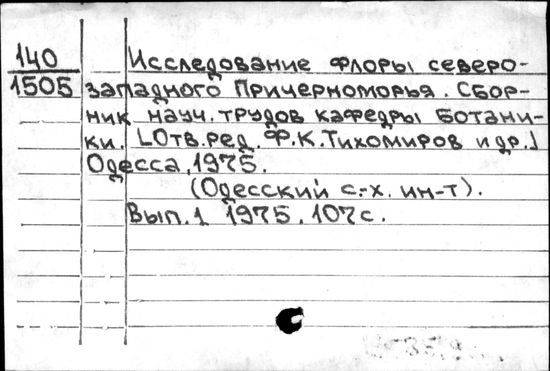 140
1505
Исследование флоры северо-
западного Причерноморья. Сбор-
ник науч. трудов кафедры ботани-
ки. [Отв. ред. Ф.К.Тихомиров и др.]
Одесса, 1975.
(Одесский с.-х. ин-т).
Вып.1 1975. 107с.